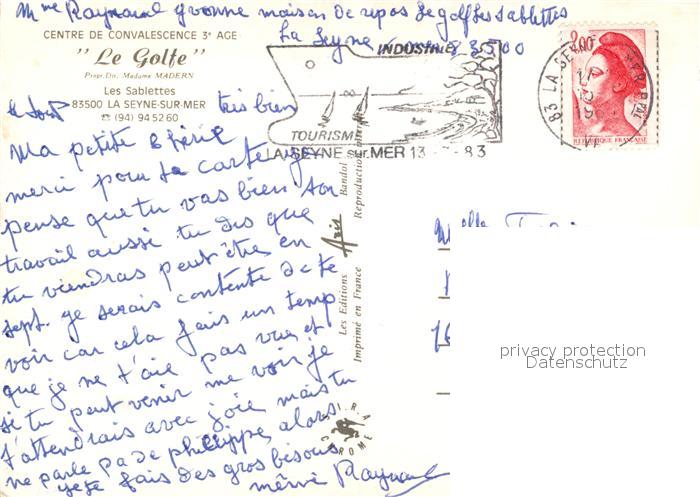 Mme Raynaud yvonne maison de repos le golf les sablettes
La Seyne 83500
CENTRE DE CONVALESCENCE 3e AGE
"Le Golfe"
Propr. Dir. Madame MADERN
Les Sablettes
83500 LA SEYNE-SUR-MER
☎ (94) 94 52 60
tres bien
Ma petite
merci pour ta carte je
pense que tu vas bien ton
travail aussi tu dis que
tu viendras peut être en
sept. je serais contente de te
voir car cela fais un temp
que je ne t'aie pas vue et
si tu peut venir me voir je
t'attendrais avec joie mais tu
ne parle pas de philippe alors
je te fais des gros bisous
mémé Raynaud
INDUSTRIE
TOURISME
LA SEYNE sur MER 13-83
83 LA SEYNE SUR MER PPAL
2,00
REPUBLIQUE FRANÇAISE
Les Editions Aris Bandol
Imprimé en France Reproduction interdite
S.I.R.A.
CHROME
Melle
privacy protection
Datenschutz